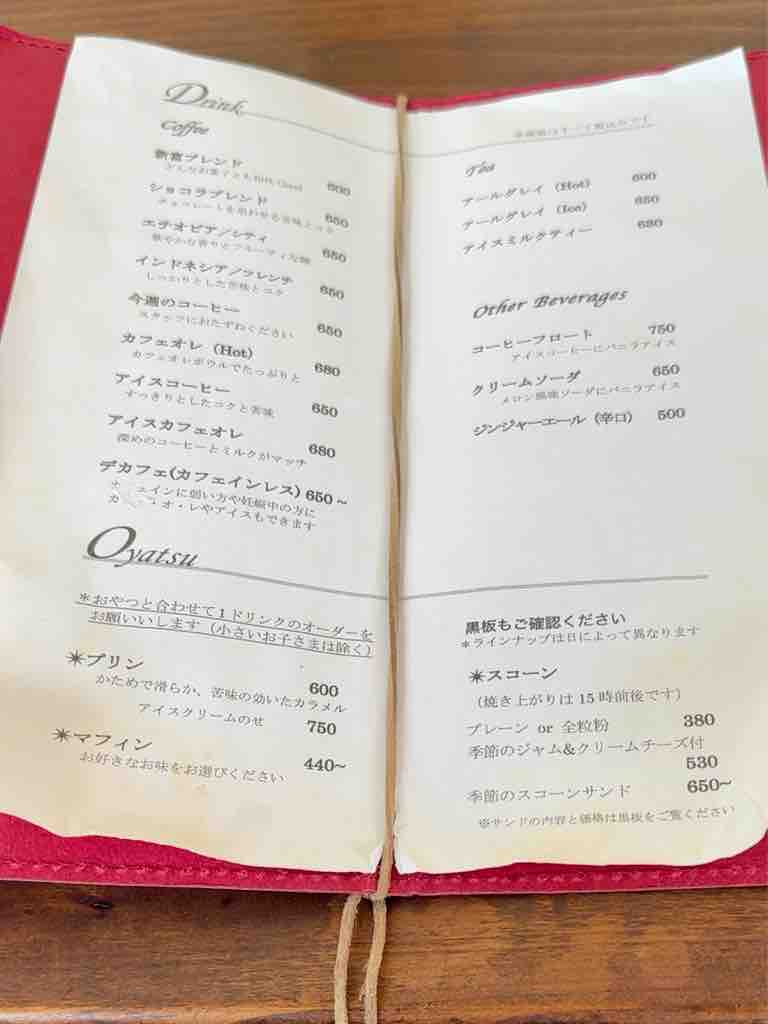 Drink
Coffee
新富ブレンド 600
どんなお菓子とも相性Good
ショコラブレンド 650
チョコレートを思わせる苦味とコク
エチオピア/シティ 650
華やかな香りとフルーティな酸
インドネシア/フレンチ 650
しっかりとした苦味とコク
今週のコーヒー 650
スタッフにおたずねください
カフェオレ (Hot) 680
カフェオレボウルでたっぷりと
アイスコーヒー 650
すっきりとしたコクと苦味
アイスカフェオレ 680
深めのコーヒーとミルクがマッチ
デカフェ(カフェインレス) 650～
ェインに弱い方や妊娠中の方に
カ オ・レやアイスもできます
Oyatsu
＊おやつと合わせて1ドリンクのオーダーを
お願いいします (小さいお子さまは除く)
✴プリン 600
かためで滑らか、苦味の効いたカラメル
アイスクリームのせ 750
✴マフィン 440~
お好きなお味をお選びください
Tea
アールグレイ (Hot) 600
アールグレイ (Ice) 650
アイスミルクティー 680
Other Beverages
コーヒーフロート 750
アイスコーヒーにバニラアイス
クリームソーダ 650
メロン風味ソーダにバニラアイス
ジンジャーエール (辛口) 500
黒板もご確認ください
＊ラインナップは日によって異なります
✴スコーン
(焼き上がりは 15 時前後です)
プレーン or 全粒粉 380
季節のジャム&クリームチーズ付
530
季節のスコーンサンド 650~
※サンドの内容と価格は黒板をご覧ください